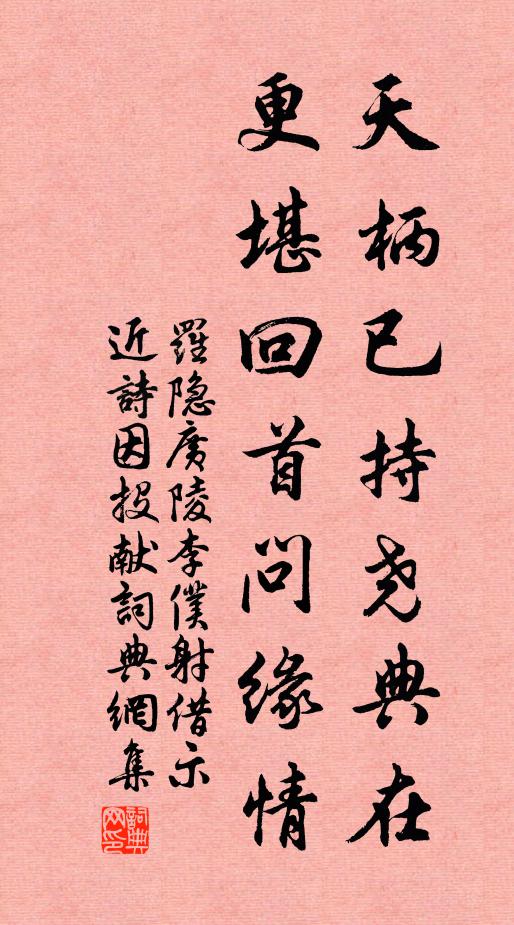 天柄已持尧典在
更堪回首问缘情
羅隐廣陵李僕射借示
近詩因投献詞典網集
詞典
网印